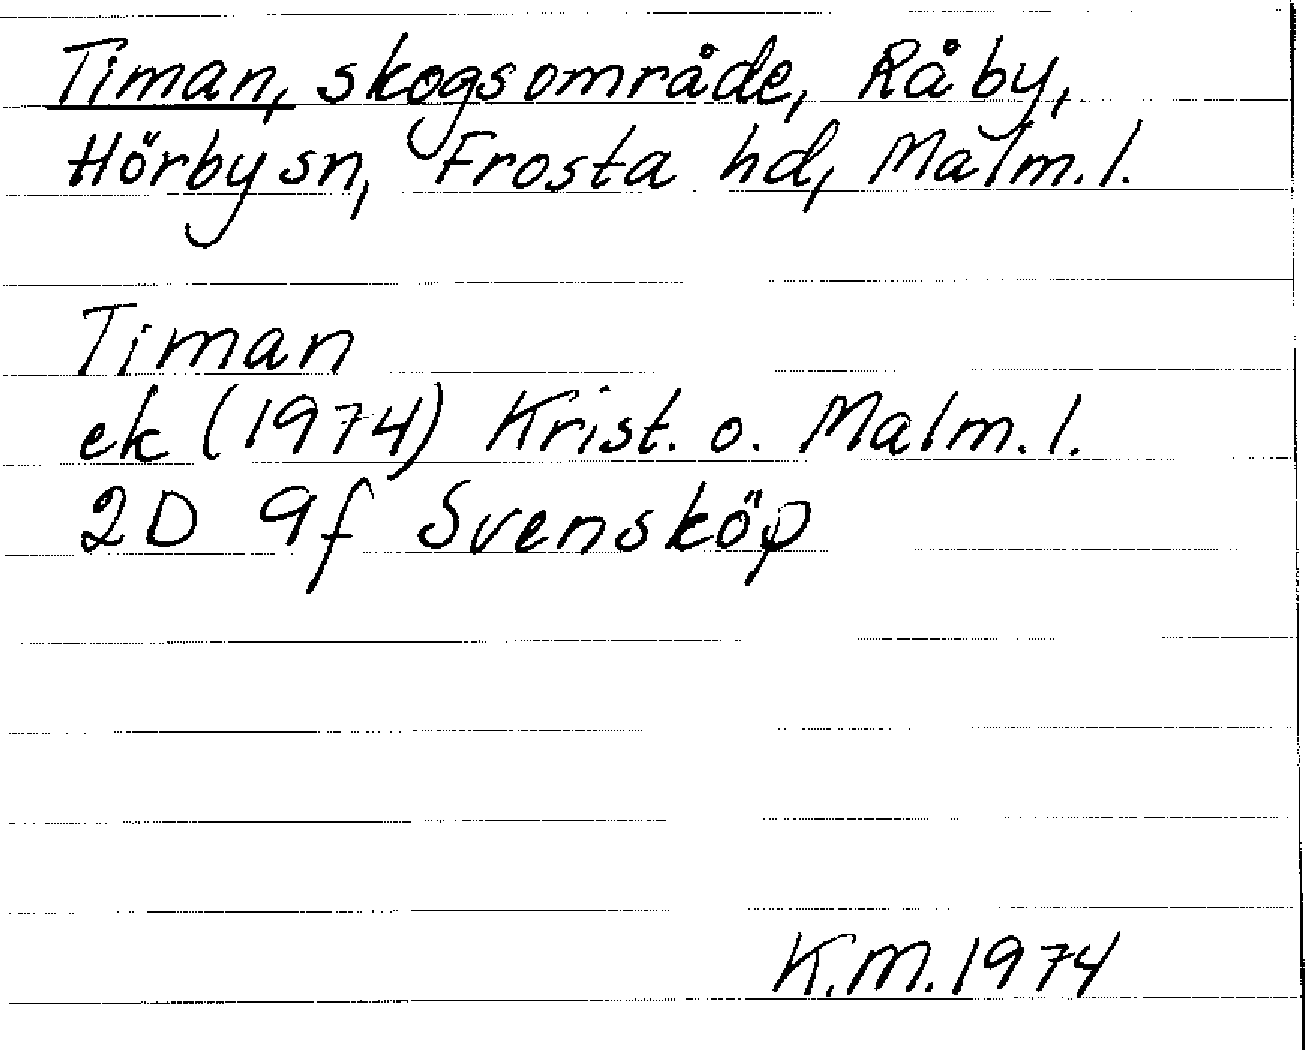 Timan, skogsområde, Råby,
Hörby sn, Frosta hd, Malm. l.
Timan
ek (1974) Krist. o. Malm. l.
2D 9f Svensköp
K.M. 1974